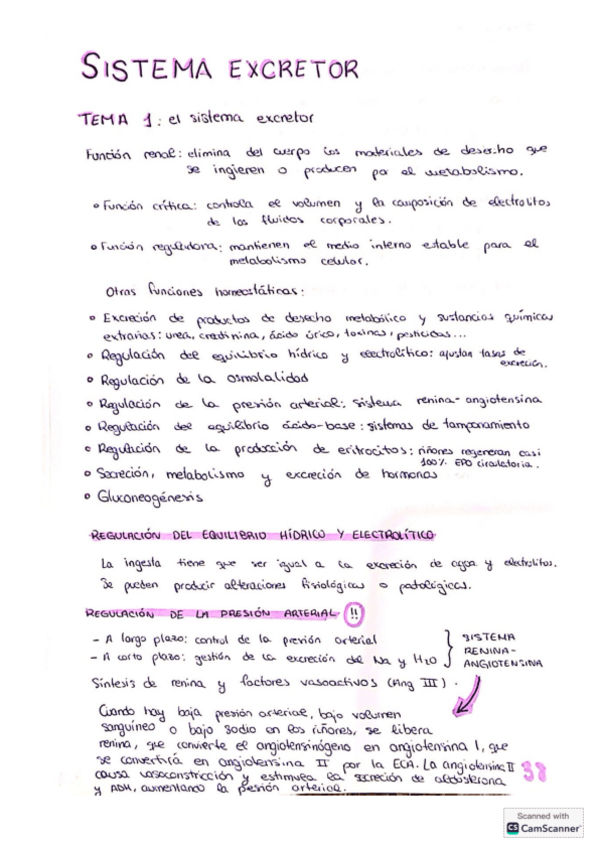 SISTEMA EXCRETOR
TEMA 1: el sistema excretor
Función renal: elimina del cuerpo los materiales de desecho que
se ingieren o producen por el metabolismo.
• Función crítica: controla el volumen y la composición de electrolitos
de los fluidos corporales.
• Función reguladora: mantienen el medio interno estable para el
metabolismo celular.
Otras funciones homeostáticas:
• Excreción de productos de desecho metabólico y sustancias químicas
extrañas: urea, creatinina, ácido úrico, toxinas, pesticidas...
• Regulación del equilibrio hídrico y electrolítico: ajustan tasas de
excreción.
• Regulación de la osmolalidad
• Regulación de la presión arterial: sistema renina-angiotensina
• Regulación del equilibrio ácido-base: sistemas de tamponamiento
• Regulación de la producción de eritrocitos: riñones regeneran casi
100% EPO circulatoria.
• Secreción, metabolismo y excreción de hormonas
• Gluconeogénesis
REGULACIÓN DEL EQUILIBRIO HÍDRICO Y ELECTROLÍTICO
La ingesta tiene que ser igual a la excreción de agua y electrolitos.
Se pueden producir alteraciones fisiológicas o patológicas.
REGULACIÓN DE LA PRESIÓN ARTERIAL !!
- A largo plazo: control de la presión arterial
- A corto plazo: gestión de la excreción del Na y H2O
SISTEMA
RENINA-
ANGIOTENSINA
Síntesis de renina y factores vasoactivos (Ang III).
Cuando hay baja presión arterial, bajo volumen
sanguíneo o bajo sodio en los riñones, se libera
renina, que convierte el angiotensinógeno en angiotensina I, que
se convertirá en angiotensina II por la ECA. La angiotensina II
causa vasoconstricción y estimula la secreción de aldosterona
y ADH, aumentando la presión arterial.
38
Scanned with
CS CamScanner